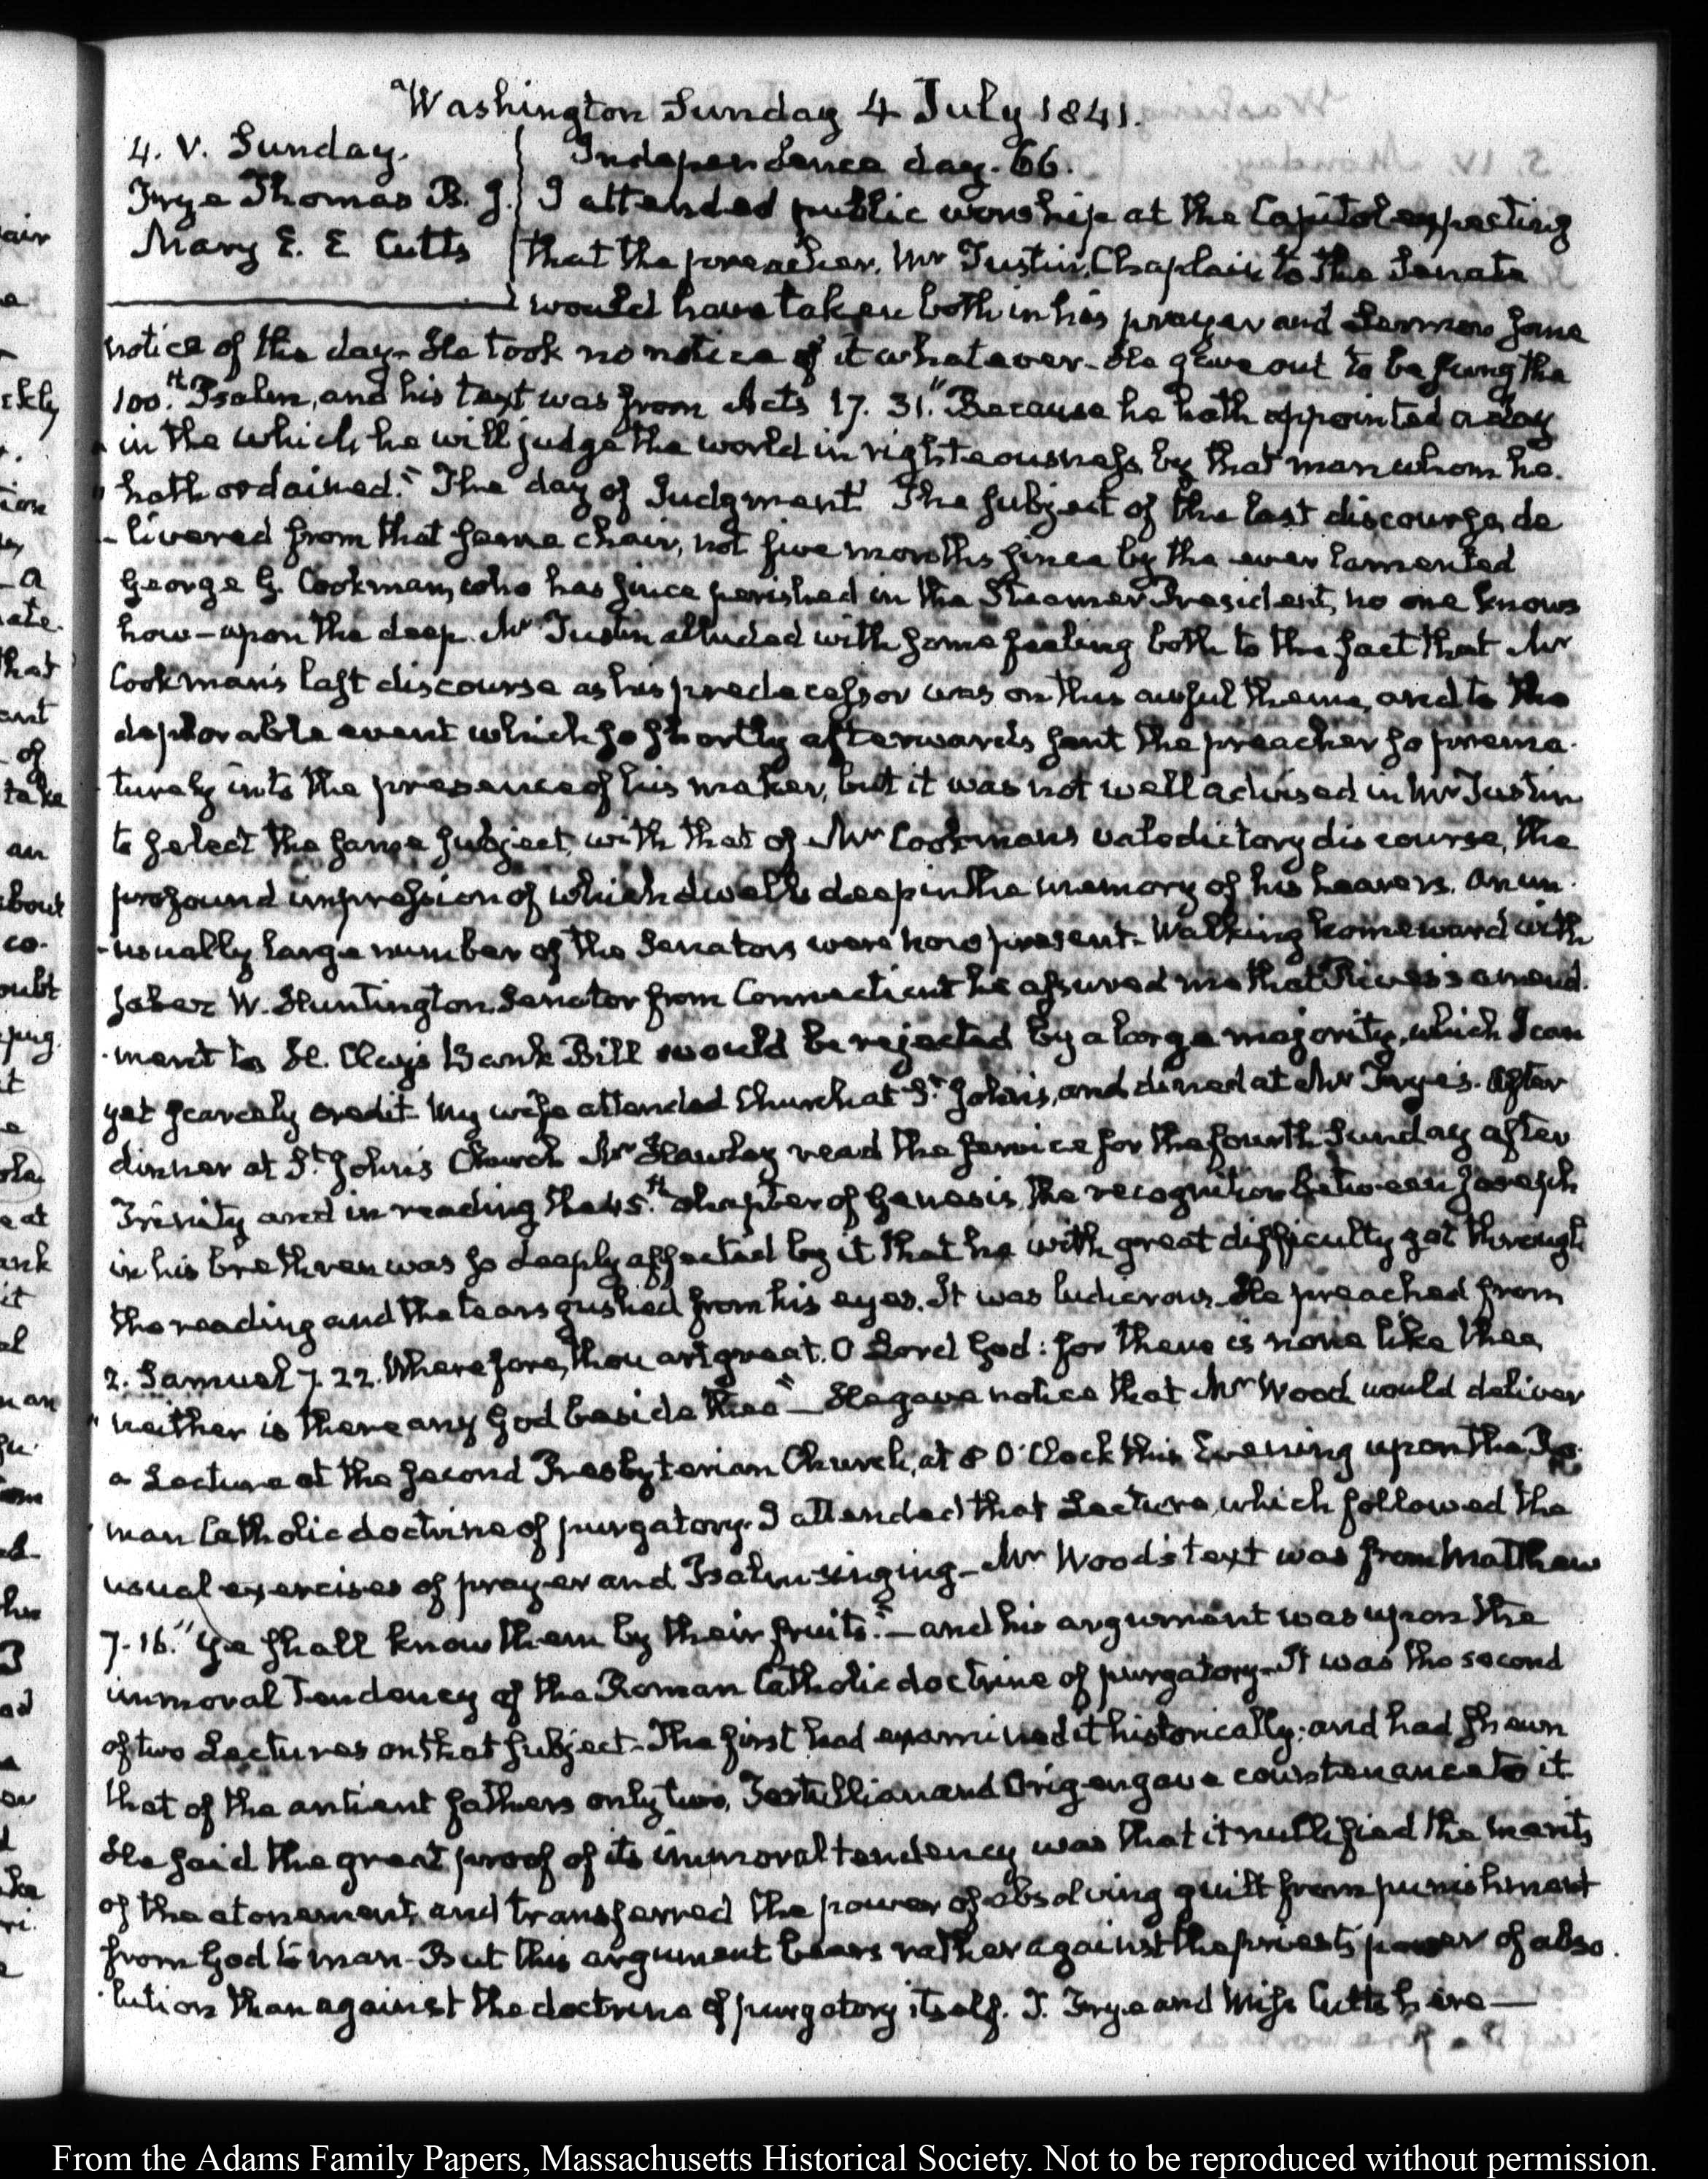 Washington Sunday 4 July 1841.
4. V. Sunday.
Frye Thomas B. J.
Mary E. E Cutts
Independence day. 66.
I attended public worship at the Capitol expecting
that the preacher, Mr Tustin, Chaplain to the Senate
would have taken both in his prayer and Sermon some
notice of the day. He took no notice of it whatever. He gave out to be sung the
100.th Psalm, and his text was from Acts 17. 31. "Because he hath appointed a day
in the which he will judge the world in righteousness, by that man whom he
" hath ordained." The day of Judgment. The subject of the last discourse, de
-livered from that same chair, not five months since by the ever lamented
George G. Cookman, who has since perished in the Steamer President, no one knows
how—upon the deep. Mr Tustin alluded with some feeling both to the fact that Mr
Cookman's last discourse as his predecessor was on this awful theme, and to the
deplorable event which so shortly afterwards sent the preacher so prema-
turely into the presence of his maker, but it was not well advised in Mr Tustin
to select the same subject, with that of Mr Cookman's valedictory discourse, the
profound impression of which dwells deep in the memory of his hearers. An un-
-usually large number of the Senators were now present. Walking homeward with
Jabez W. Huntington Senator from Connecticut he assured me that Rives's amend-
-ment to H. Clay's Bank Bill would be rejected by a large majority, which I can
yet scarcely credit. My wife attended Church at St. John's, and dined at Mr Frye's. After
dinner at St. John's Church Mr Hawley read the service for the fourth Sunday after
Trinity and in reading the 45.th chapter of Genesis, the recognition between Joseph
in his brethren was so deeply affected by it that he with great difficulty got through
the reading and the tears gushed from his eyes. It was ludicrous. He preached from
2. Samuel 7. 22. Wherefore, thou art great. O Lord God: for there is none like thee,
" neither is there any God beside thee"—He gave notice that Mr Wood would deliver
a Lecture at the second Presbyterian Church, at 8 O'Clock this Evening upon the Ro-
man Catholic doctrine of purgatory. I attended that Lecture, which followed the
usual exercises of prayer and Psalm-singing—Mr Wood's text was from Matthew
7. 16. "Ye shall know them by their fruits."—and his argument was upon the
immoral tendency of the Roman Catholic doctrine of purgatory. It was the second
of two Lectures on that subject. The first had examined it historically; and had shewn
that of the antient fathers only two, Tertullian and Origen gave countenance to it
He said the great proof of its immoral tendency was that it nullified the merits
of the atonement, and transferred the power of absolving guilt from punishment
from God to man. But this argument bears rather against the priest's power of abso-
-lution than against the doctrine of purgatory itself. T. Frye and Miss Cutts here—
From the Adams Family Papers, Massachusetts Historical Society. Not to be reproduced without permission.